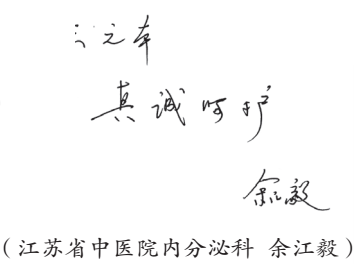 元本
真诚呵护
余江毅
(江苏省中医院内分泌科 余江毅)